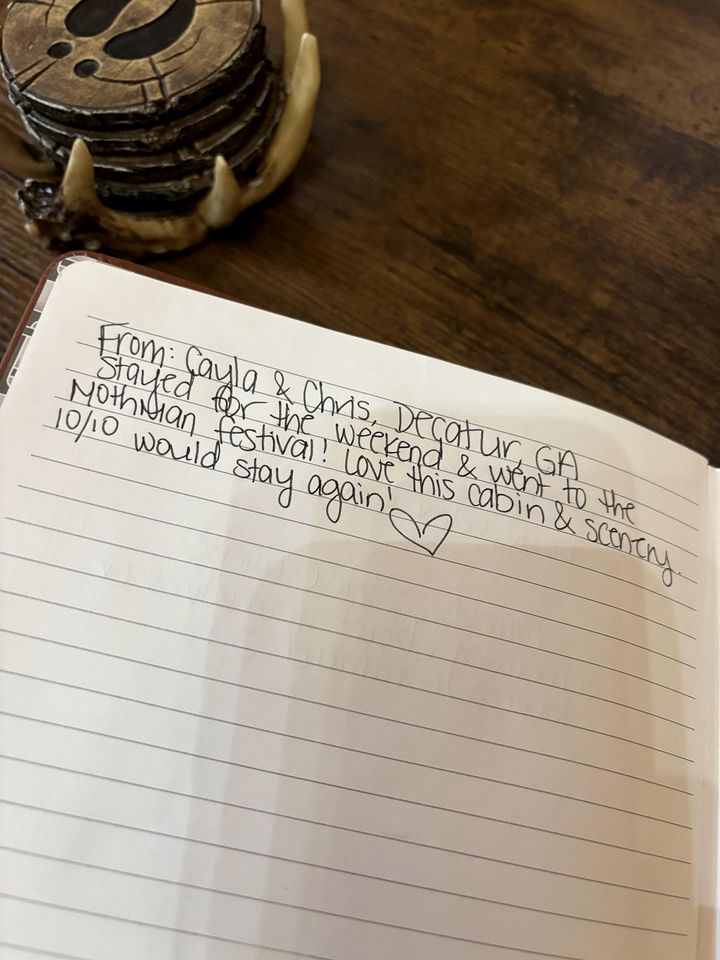 From: Cayla & Chris, Decatur, GA
Stayed for the weekend & went to the
Mothman festival! Love this cabin & scenery.
10/10 would stay again! ♡